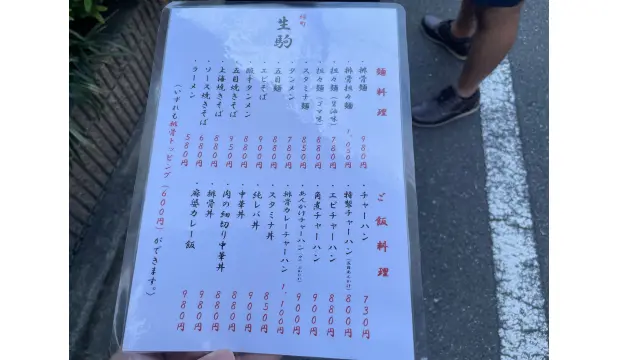 稲町
生駒
麺料理
・排骨麺 980円
・排骨担々麺 1,050円
・担々麺（醤油味） 780円
・担々麺（ゴマ味） 880円
・スタミナ麺 850円
・タンメン 780円
・五目麺 880円
・エビそば 900円
・餃子タンメン 880円
・五目焼きそば 950円
・上海焼きそば 880円
・ソース焼きそば 680円
・ラーメン 580円
ご飯料理
・チャーハン 730円
・特製チャーハン 800円
・エビチャーハン 880円
・角煮チャーハン 900円
・あんかけチャーハン 900円
・排骨カレーチャーハン 1,100円
・スタミナ丼 850円
・純レバ丼 900円
・中華丼 880円
・肉の細切り中華丼 880円
・排骨丼 980円
・麻婆カレー飯 980円
（いずれも排骨トッピング（600円）ができます。）